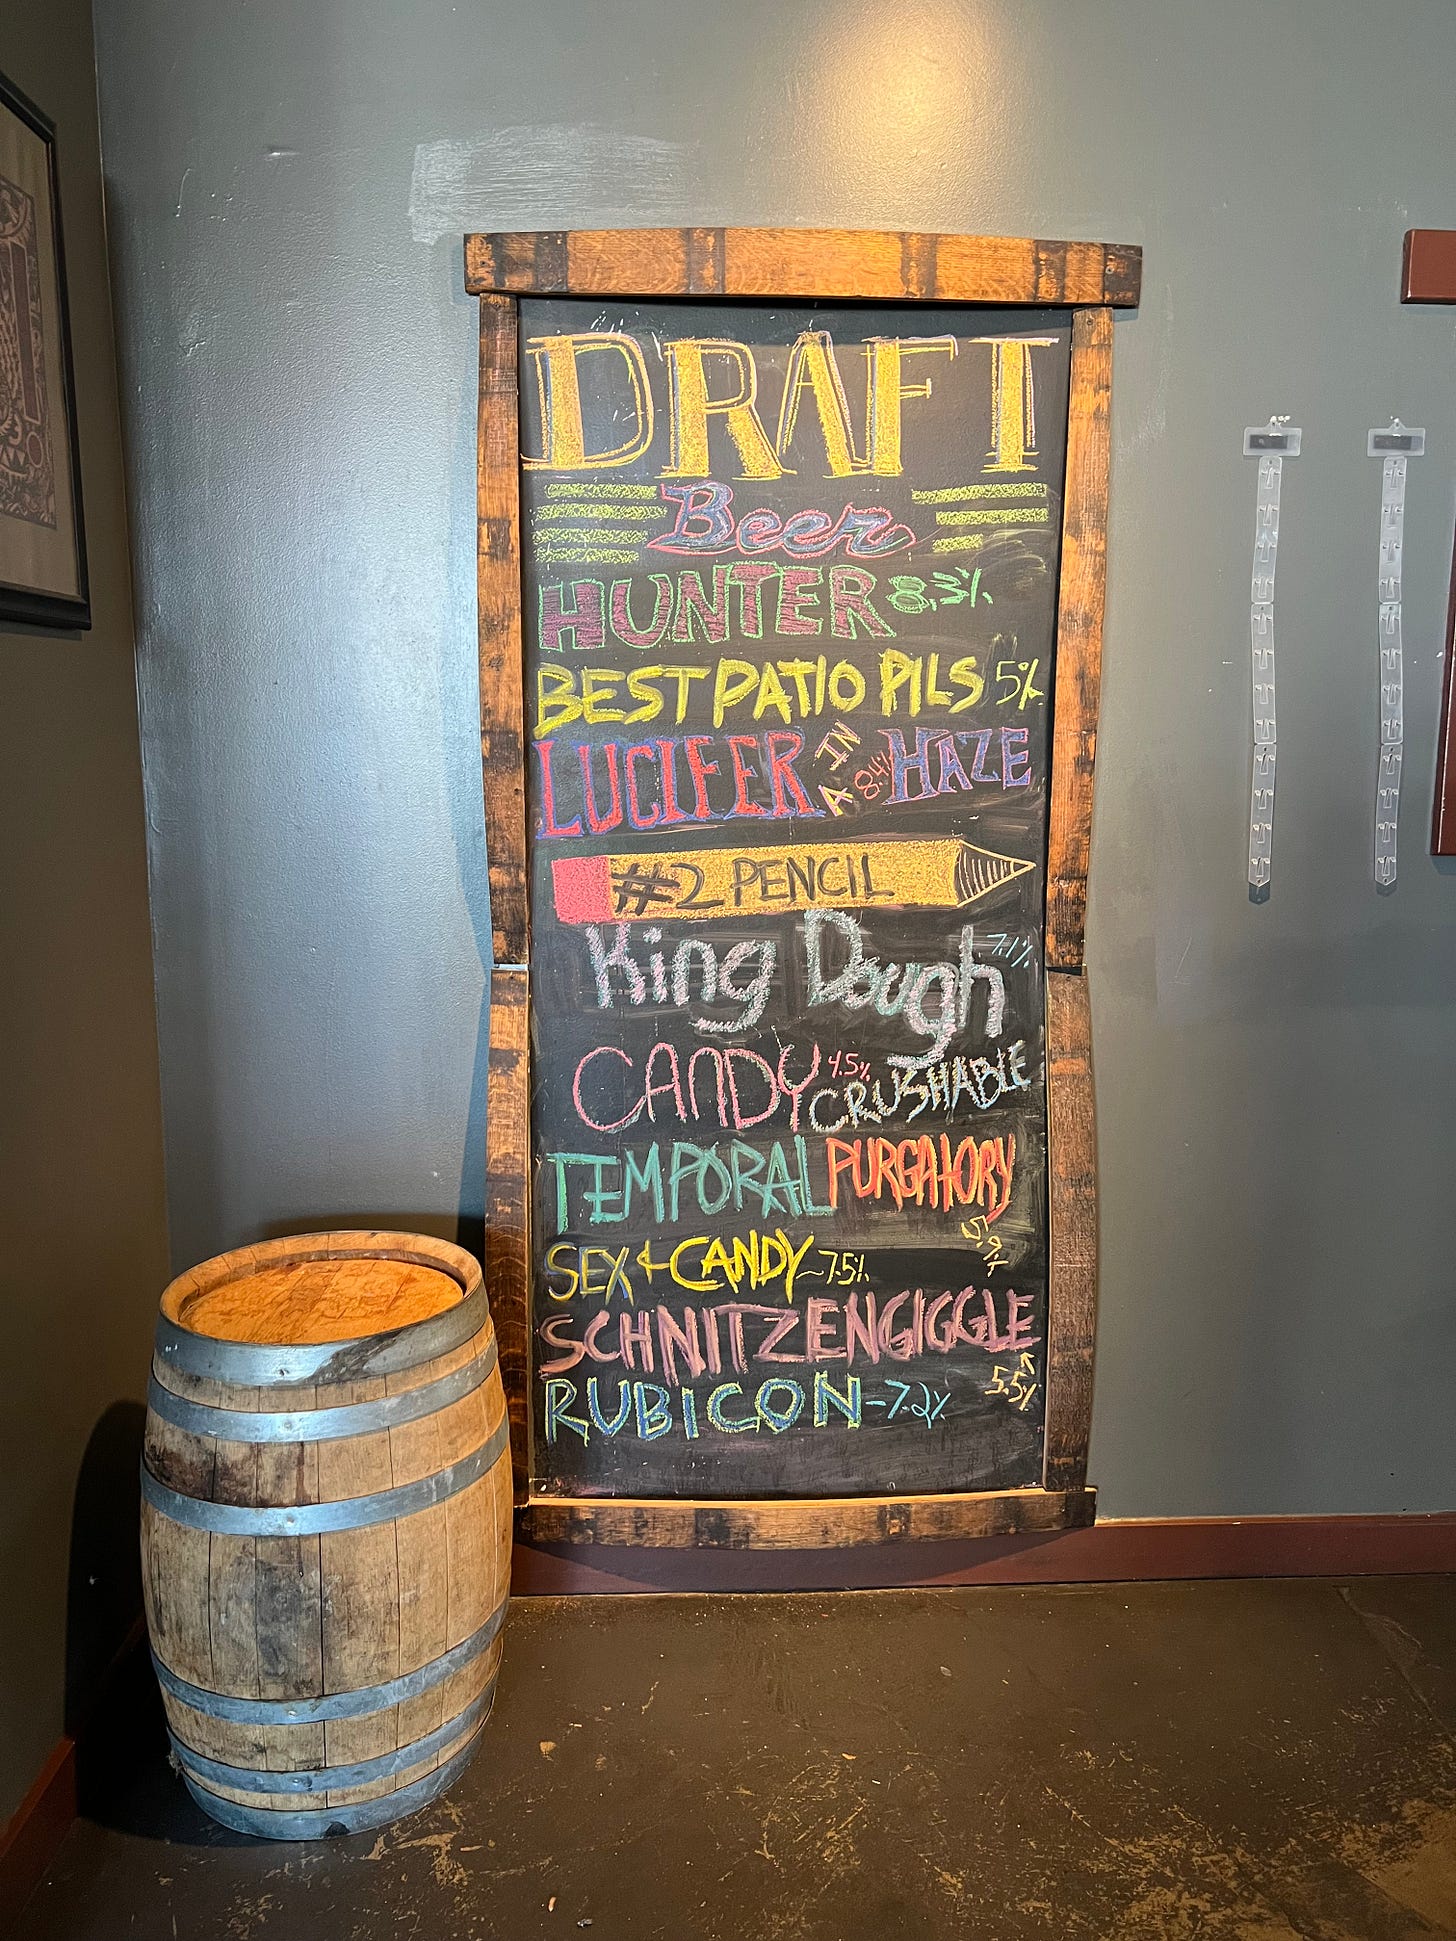 DRAFT
Beer
HUNTER 8.3%
BEST PATIO PILS 5%
LUCIFER IN A 8.4% HAZE
#2 PENCIL
King Dough 7.1%
CANDY 4.5% CRUSHABLE
TEMPORAL PURGATORY
5.9%
SEX & CANDY ~7.5%
SCHNITZENGIGGLE
5.5%
RUBICON -7.2%